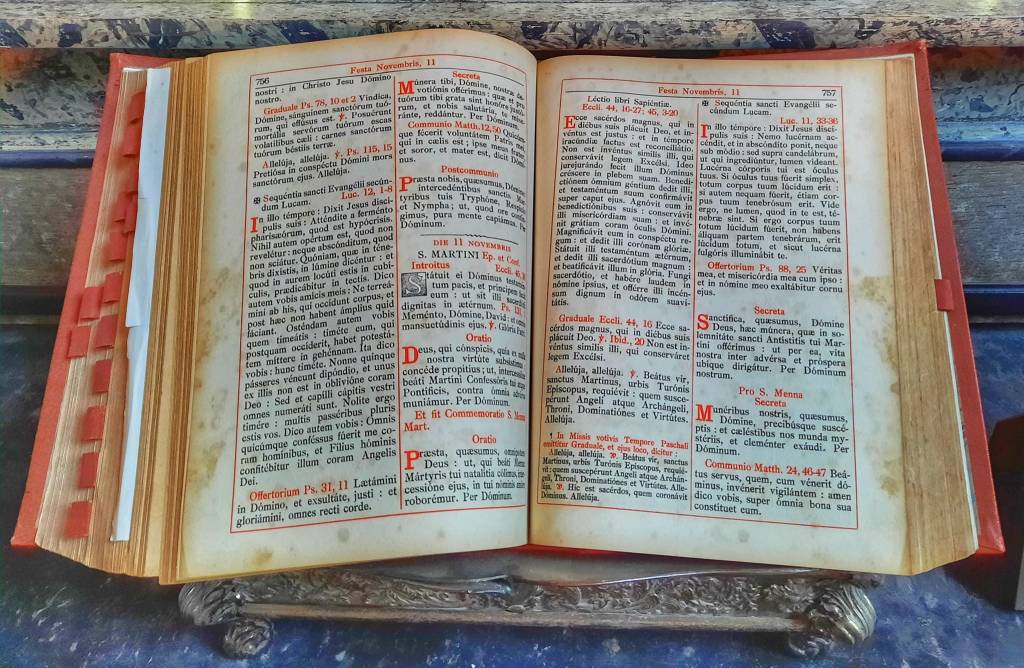 756
Festa Novembris, 11
nostri : in Christo Jesu Dómino
nostro.
Graduale Ps. 78, 10 et 2 Vindica,
Dómine, sánguinem sanctórum tuó-
rum, qui effúsus est. ℣. Posuérunt
mortália servórum tuórum escas
volatílibus cæli : carnes sanctórum
tuórum béstiis terræ.
Allelúja, allelúja. ℣. Ps. 115, 15
Pretiósa in conspéctu Dómini mors
sanctórum ejus. Allelúja.
✠ Sequéntia sancti Evangélii secún-
dum Lucam. Luc. 12, 1-8
In illo témpore : Dixit Jesus discí-
pulis suis : Atténdite a ferménto
pharisæórum, quod est hypócrisis.
Nihil autem opértum est, quod non
revelétur : neque abscónditum, quod
non sciátur. Quóniam, quæ in téne-
bris dixístis, in lúmine dicéntur : et
quod in aurem locúti estis in cubí-
culis, prædicábitur in tectis. Dico
autem vobis amícis meis : Ne terreá-
mini ab his, qui occídunt corpus, et
post hæc non habent ámplius quid
fáciant. Osténdam autem vobis
quem timeátis : timéte eum, qui
postquam occíderit, habet potestá-
tem míttere in gehénnam. Ita dico
vobis : hunc timéte. Nonne quinque
pásseres véneunt dipóndio, et unus
ex illis non est in oblivióne coram
Deo : Sed et capílli cápitis vestri
omnes numeráti sunt. Nolíte ergo
timére : multis passéribus pluris
estis vos. Dico autem vobis : Omnis
quicúmque conféssus fúerit me co-
ram homínibus, et Fílius hóminis
confitébitur illum coram Angelis
Dei.
Offertorium Ps. 31, 11 Lætámini
in Dómino, et exsultáte, justi : et
gloriámini, omnes recti corde.
Secreta
Múnera tibi, Dómine, nostræ de-
votiónis offérimus : quæ et pro
tuórum tibi grata sint honóre justó-
rum, et nobis salutária, te mise-
ránte, reddántur. Per Dóminum.
Communio Matth. 12, 50 Quicúm-
que fécerit voluntátem Patris mei,
qui in cælis est ; ipse meus frater,
et soror, et mater est, dicit Dómi-
nus.
Postcommunio
Præsta nobis, quæsumus, Dómine
intercedéntibus sanctis Mar-
týribus tuis Tryphóne, Respício
et Nympha ; ut, quod ore contín-
gimus, pura mente capiámus. Per
Dóminum.
DIE 11 NOVEMBRIS
S. MARTINI Ep. et Conf.
Introitus Eccli. 45, 30
Státuit ei Dóminus testamén-
tum pacis, et príncipem fecit
eum : ut sit illi sacerdótii
dignitas in ætérnum. Ps. 131, 1
Meménto, Dómine, David : et omnis
mansuetúdinis ejus. ℣. Glória Patri.
Oratio
Deus, qui cónspicis, quia ex nulla
nostra virtúte subsístimus :
concéde propítius ; ut, intercessióne
beáti Martíni Confessóris tui atque
Pontíficis, contra ómnia advérsa
muniámur. Per Dóminum.
Et fit Commemoratio S. Mennæ
Mart.
Oratio
Præsta, quæsumus, omnípotens
Deus : ut, qui beáti Mennæ
Mártyris tui natalítia cólimus, inter-
cessióne ejus, in tui nóminis amóre
roborémur. Per Dóminum.
Festa Novembris, 11
757
Léctio libri Sapiéntiæ.
Eccli. 44, 16-27; 45, 3-20
Ecce sacérdos magnus, qui in
diébus suis plácuit Deo, et in-
véntus est justus : et in témpore
iracúndiæ factus est reconciliátio.
Non est invéntus símilis illi, qui
conservávit legem Excélsi. Ideo
jurejurándo fecit illum Dóminus
créscere in plebem suam. Benedi-
ctiónem ómnium géntium dedit illi,
et testaméntum suum confirmávit
super caput ejus. Agnóvit eum in
benedictiónibus suis : conservávit
illi misericórdiam suam : et invé-
nit grátiam coram óculis Dómini.
Magnificávit eum in conspéctu re-
gum : et dedit illi corónam glóriæ.
Státuit illi testaméntum ætérnum,
et dedit illi sacerdótium magnum :
et beatificávit illum in glória. Fungi
sacerdótio, et habére laudem in
nómine ipsíus, et offérre illi incén-
sum dignum in odórem suavi-
tátis.
Graduale Eccli. 44, 16 Ecce sa-
cérdos magnus, qui in diébus suis
plácuit Deo. ℣. Ibid., 20 Non est in-
véntus símilis illi, qui conserváret
legem Excélsi.
Allelúja, allelúja. ℣. Beátus vir,
sanctus Martínus, urbis Turónis
Epíscopus, requiévit : quem susce-
pérunt Angeli atque Archángeli,
Throni, Dominatiónes et Virtútes.
Allelúja.
¶ In Missis votivis Tempore Paschali
omittitur Graduale, et ejus loco, dicitur :
Allelúja, allelúja. ℣. Beátus vir, sanctus
Martínus, urbis Turónis Epíscopus, requié-
vit : quem suscepérunt Angeli atque Archán-
geli, Throni, Dominatiónes et Virtútes. Alle-
lúja. ℣. Hic est sacérdos, quem coronávit
Dóminus. Allelúja.
✠ Sequéntia sancti Evangélii se-
cúndum Lucam.
Luc. 11, 33-36
In illo témpore : Dixit Jesus discí-
pulis suis : Nemo lucérnam ac-
céndit, et in abscóndito ponit, neque
sub módio : sed supra candelábrum,
ut qui ingrediúntur, lumen vídeant.
Lucérna córporis tui est óculus
tuus. Si óculus tuus fúerit simplex,
totum corpus tuum lúcidum erit :
si autem nequam fúerit, étiam cor-
pus tuum tenebrósum erit. Vide
ergo, ne lumen, quod in te est, té-
nebræ sint. Si ergo corpus tuum
totum lúcidum fúerit, non habens
áliquam partem tenebrárum, erit
lúcidum totum, et sicut lucérna
fulgóris illuminábit te.
Offertorium Ps. 88, 25 Véritas
mea, et misericórdia mea cum ipso :
et in nómine meo exaltábitur cornu
ejus.
Secreta
Sanctífica, quæsumus, Dómine
Deus, hæc múnera, quæ in so-
lemnitáte sancti Antístitis tui Mar-
tíni offérimus : ut per ea, vita
nostra inter advérsa et próspera
ubíque dirigátur. Per Dóminum
nostrum.
Pro S. Menna
Secreta
Munéribus nostris, quæsumus,
Dómine, precibúsque suscé-
ptis : et cæléstibus nos munda my-
stériis, et cleménter exáudi. Per
Dóminum.
Communio Matth. 24, 46-47 Beá-
tus servus, quem, cum vénerit dó-
minus, invénerit vigilántem : amen
dico vobis, super ómnia bona sua
constítuet eum.